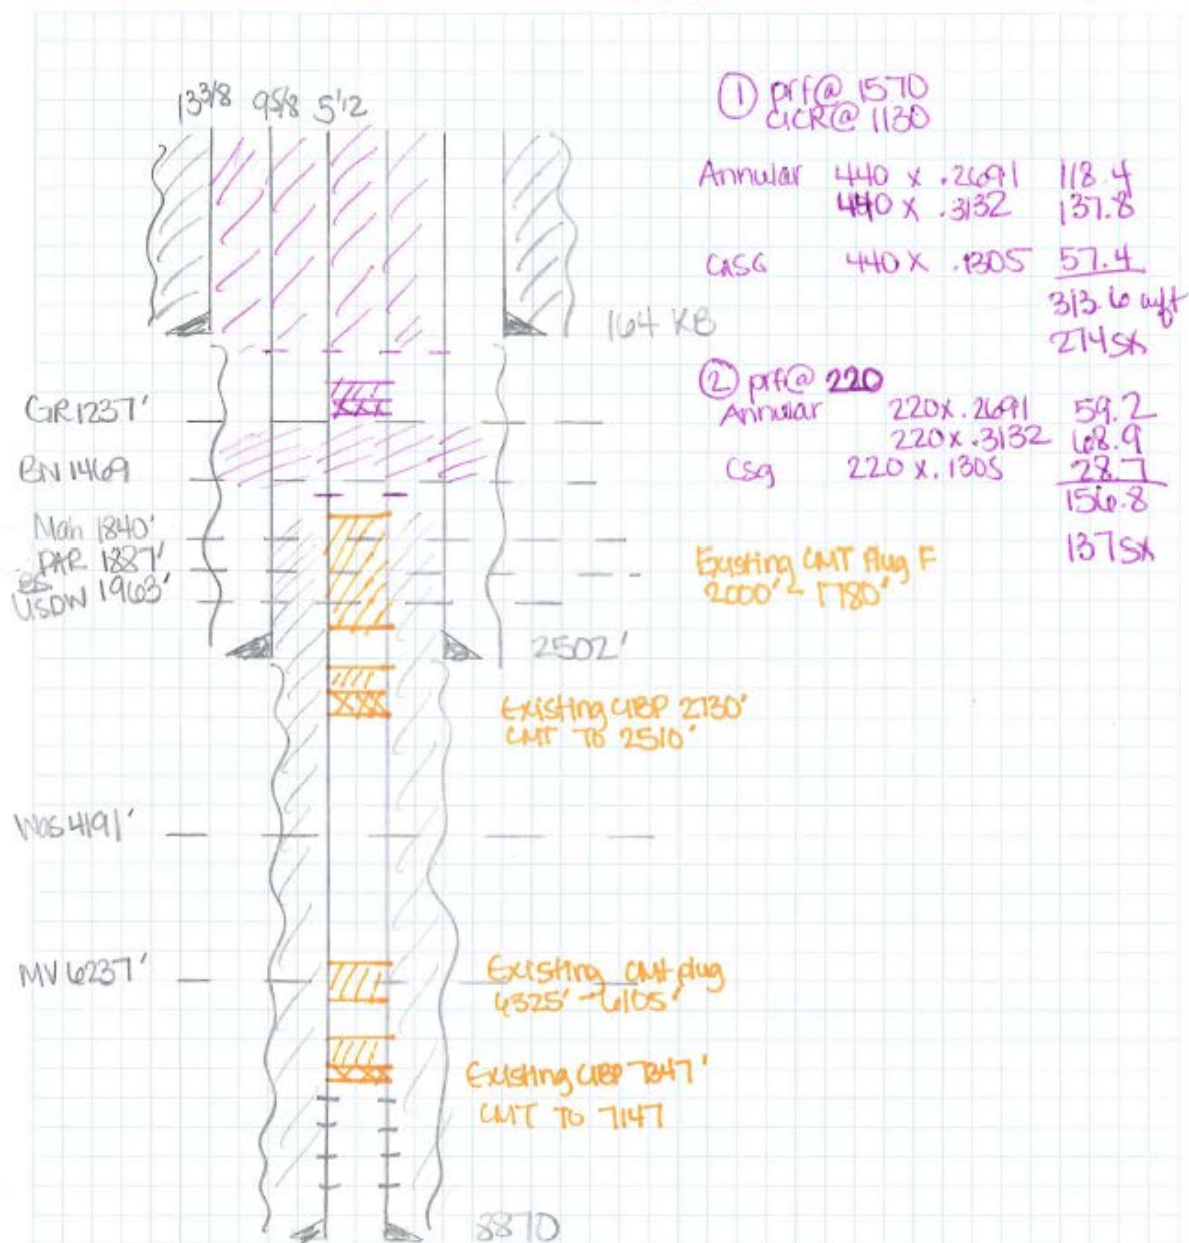 13 3/8 9 5/8 5 1/2
① prf@ 1570
CICR@ 1130
Annular 440 x .2691 118.4
440 x .3132 137.8
CASG 440 x .1305 57.4
313.6 cuft
274 SX
164 KB
② prf@ 220
Annular 220 x .2691 59.2
220 x .3132 68.9
Csg 220 x .1305 28.7
156.8
137 SX
GR 1237'
BN 1469
Mah 1840'
PAR 1887'
USDW 1963'
Existing CMT Plug F
2000' - 1780'
2502'
Existing CIBP 2730'
CMT TO 2510'
Was 4191'
MV 6237'
Existing CMT plug
6325' - 6105'
Existing CIBP 7347'
CMT TO 7147
8870